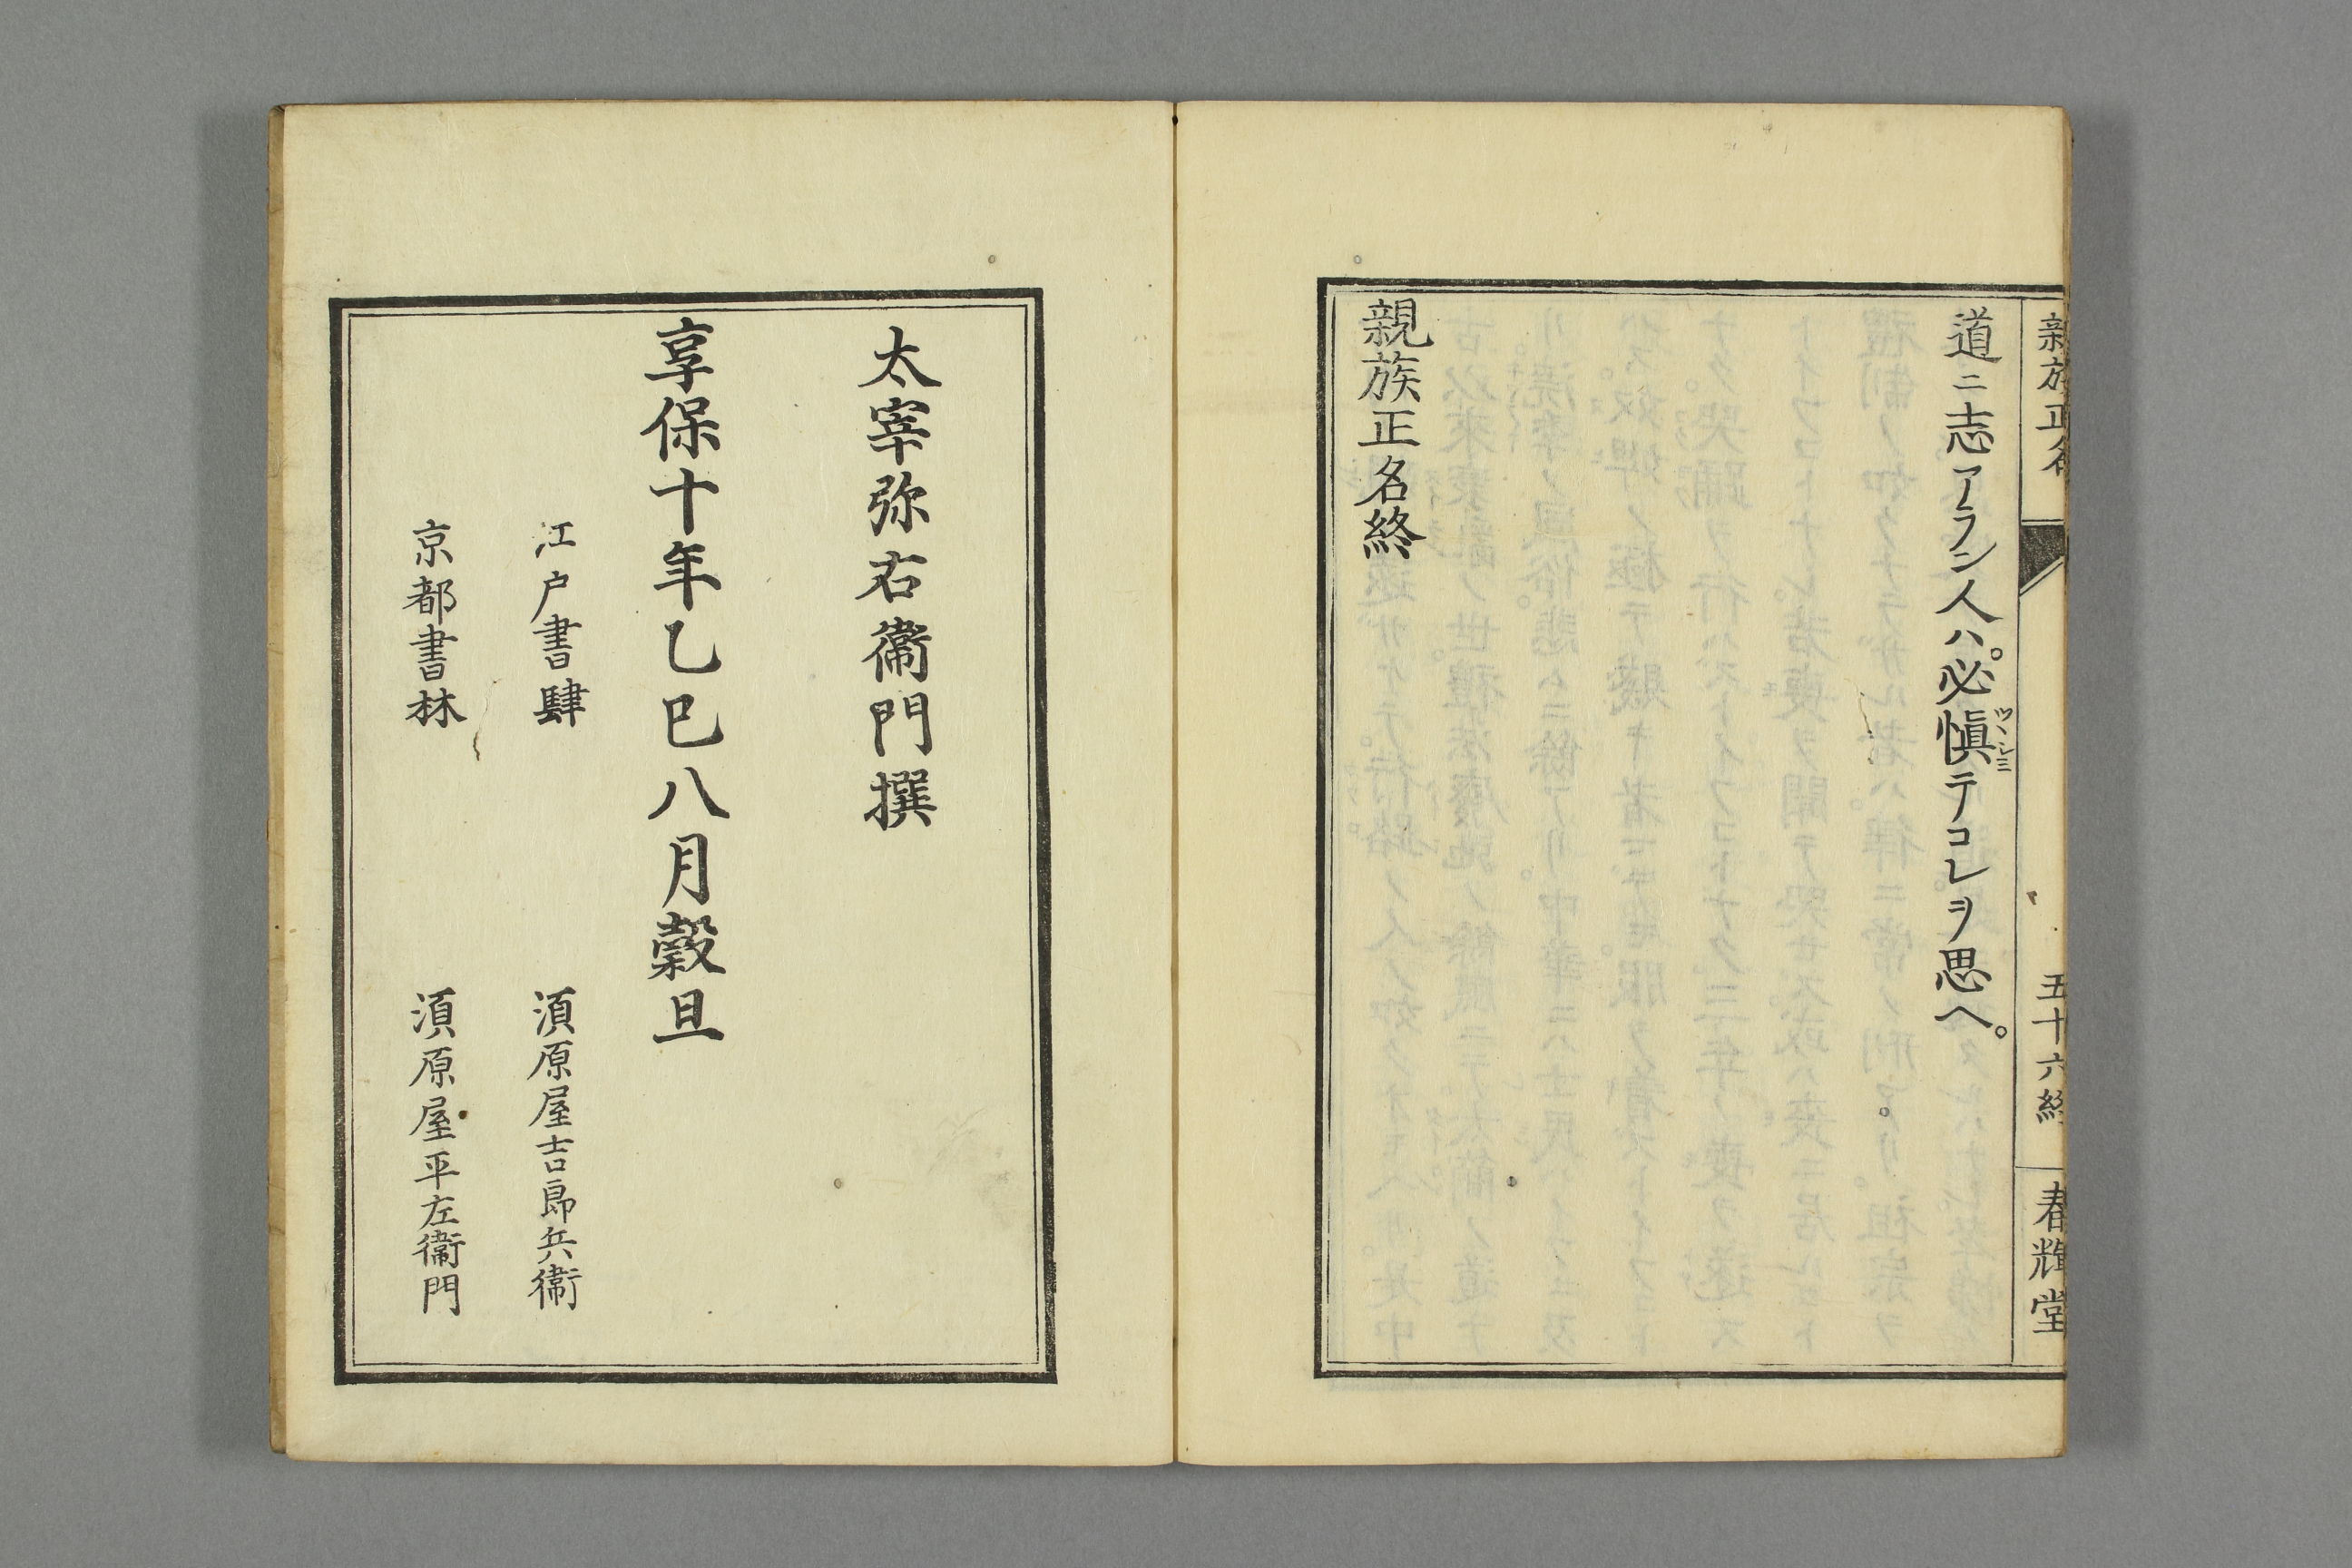 親族正名
五十六終
春輝堂
道ニ志アラン人ハ。必慎テコレヲ思ヘ。
ツヽシミ
親族正名終
太宰弥右衛門撰
享保十年乙巳八月穀旦
江戸書肆 須原屋吉郎兵衛
京都書林 須原屋平左衛門